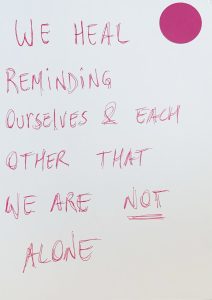 WE HEAL
REMINDING
OURSELVES & EACH
OTHER THAT
WE ARE NOT
ALONE